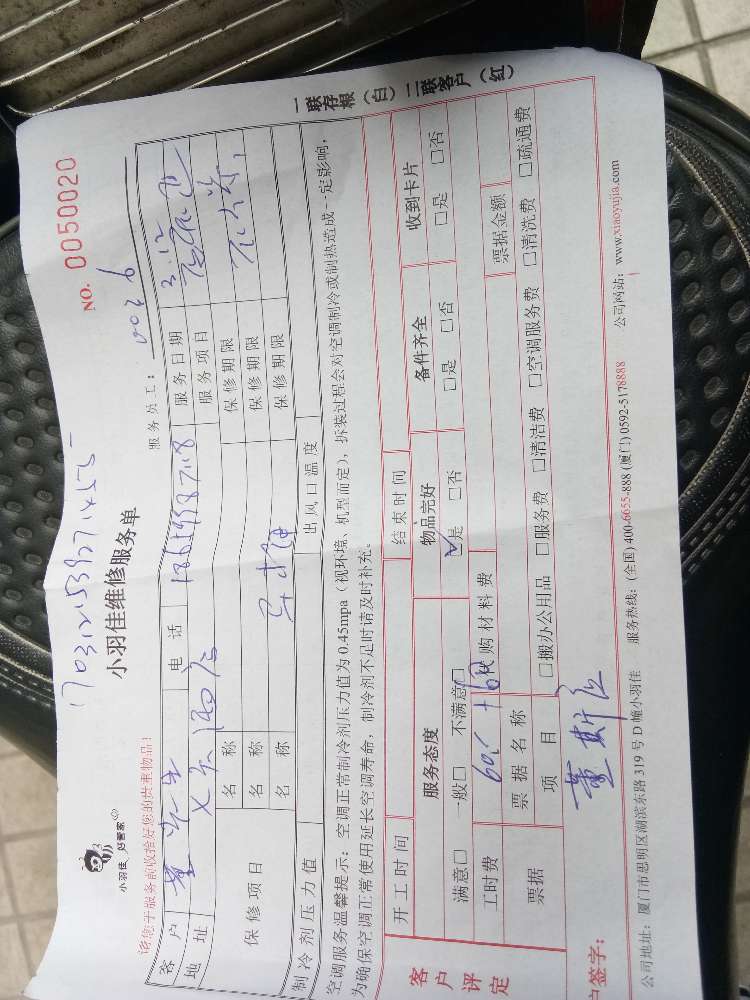 NO. 0050020
17031215392714555
小羽佳 好管家
小羽佳维修服务单
服务员工: 0026
请您于服务前收拾好您的贵重物品!
客 户 董先生 电 话 服务日期 3.12
地 址 服务项目
保修项目 名 称 保修期限
名 称 保修期限
名 称 保修期限
制冷剂压力值 出风口温度
空调服务温馨提示: 空调正常制冷剂压力值为 0.45mpa (视环境、机型而定), 拆装过程会对空调制冷或制热造成一定影响,
为确保空调正常使用延长空调寿命, 制冷剂不足时请及时补充。
一联存根(白) 二联客户(红)
客户评定
开工时间 结束时间
服务态度 物品完好 备件齐全 收到卡片
满意□ 一般□ 不满意□ ☑是 □否 □是 □否 □是 □否
工时费 代购材料费
票据 票据名称 票据金额
项 目 □搬办公用品 □服务费 □清洁费 □空调服务费 □清洗费 □疏通费
户签字:
公司地址: 厦门市思明区湖滨东路 319 号 D 幢小羽佳 服务热线: (全国) 400-6655-888 (厦门) 0592-5178888 公司网站: www.xiaoyujia.com